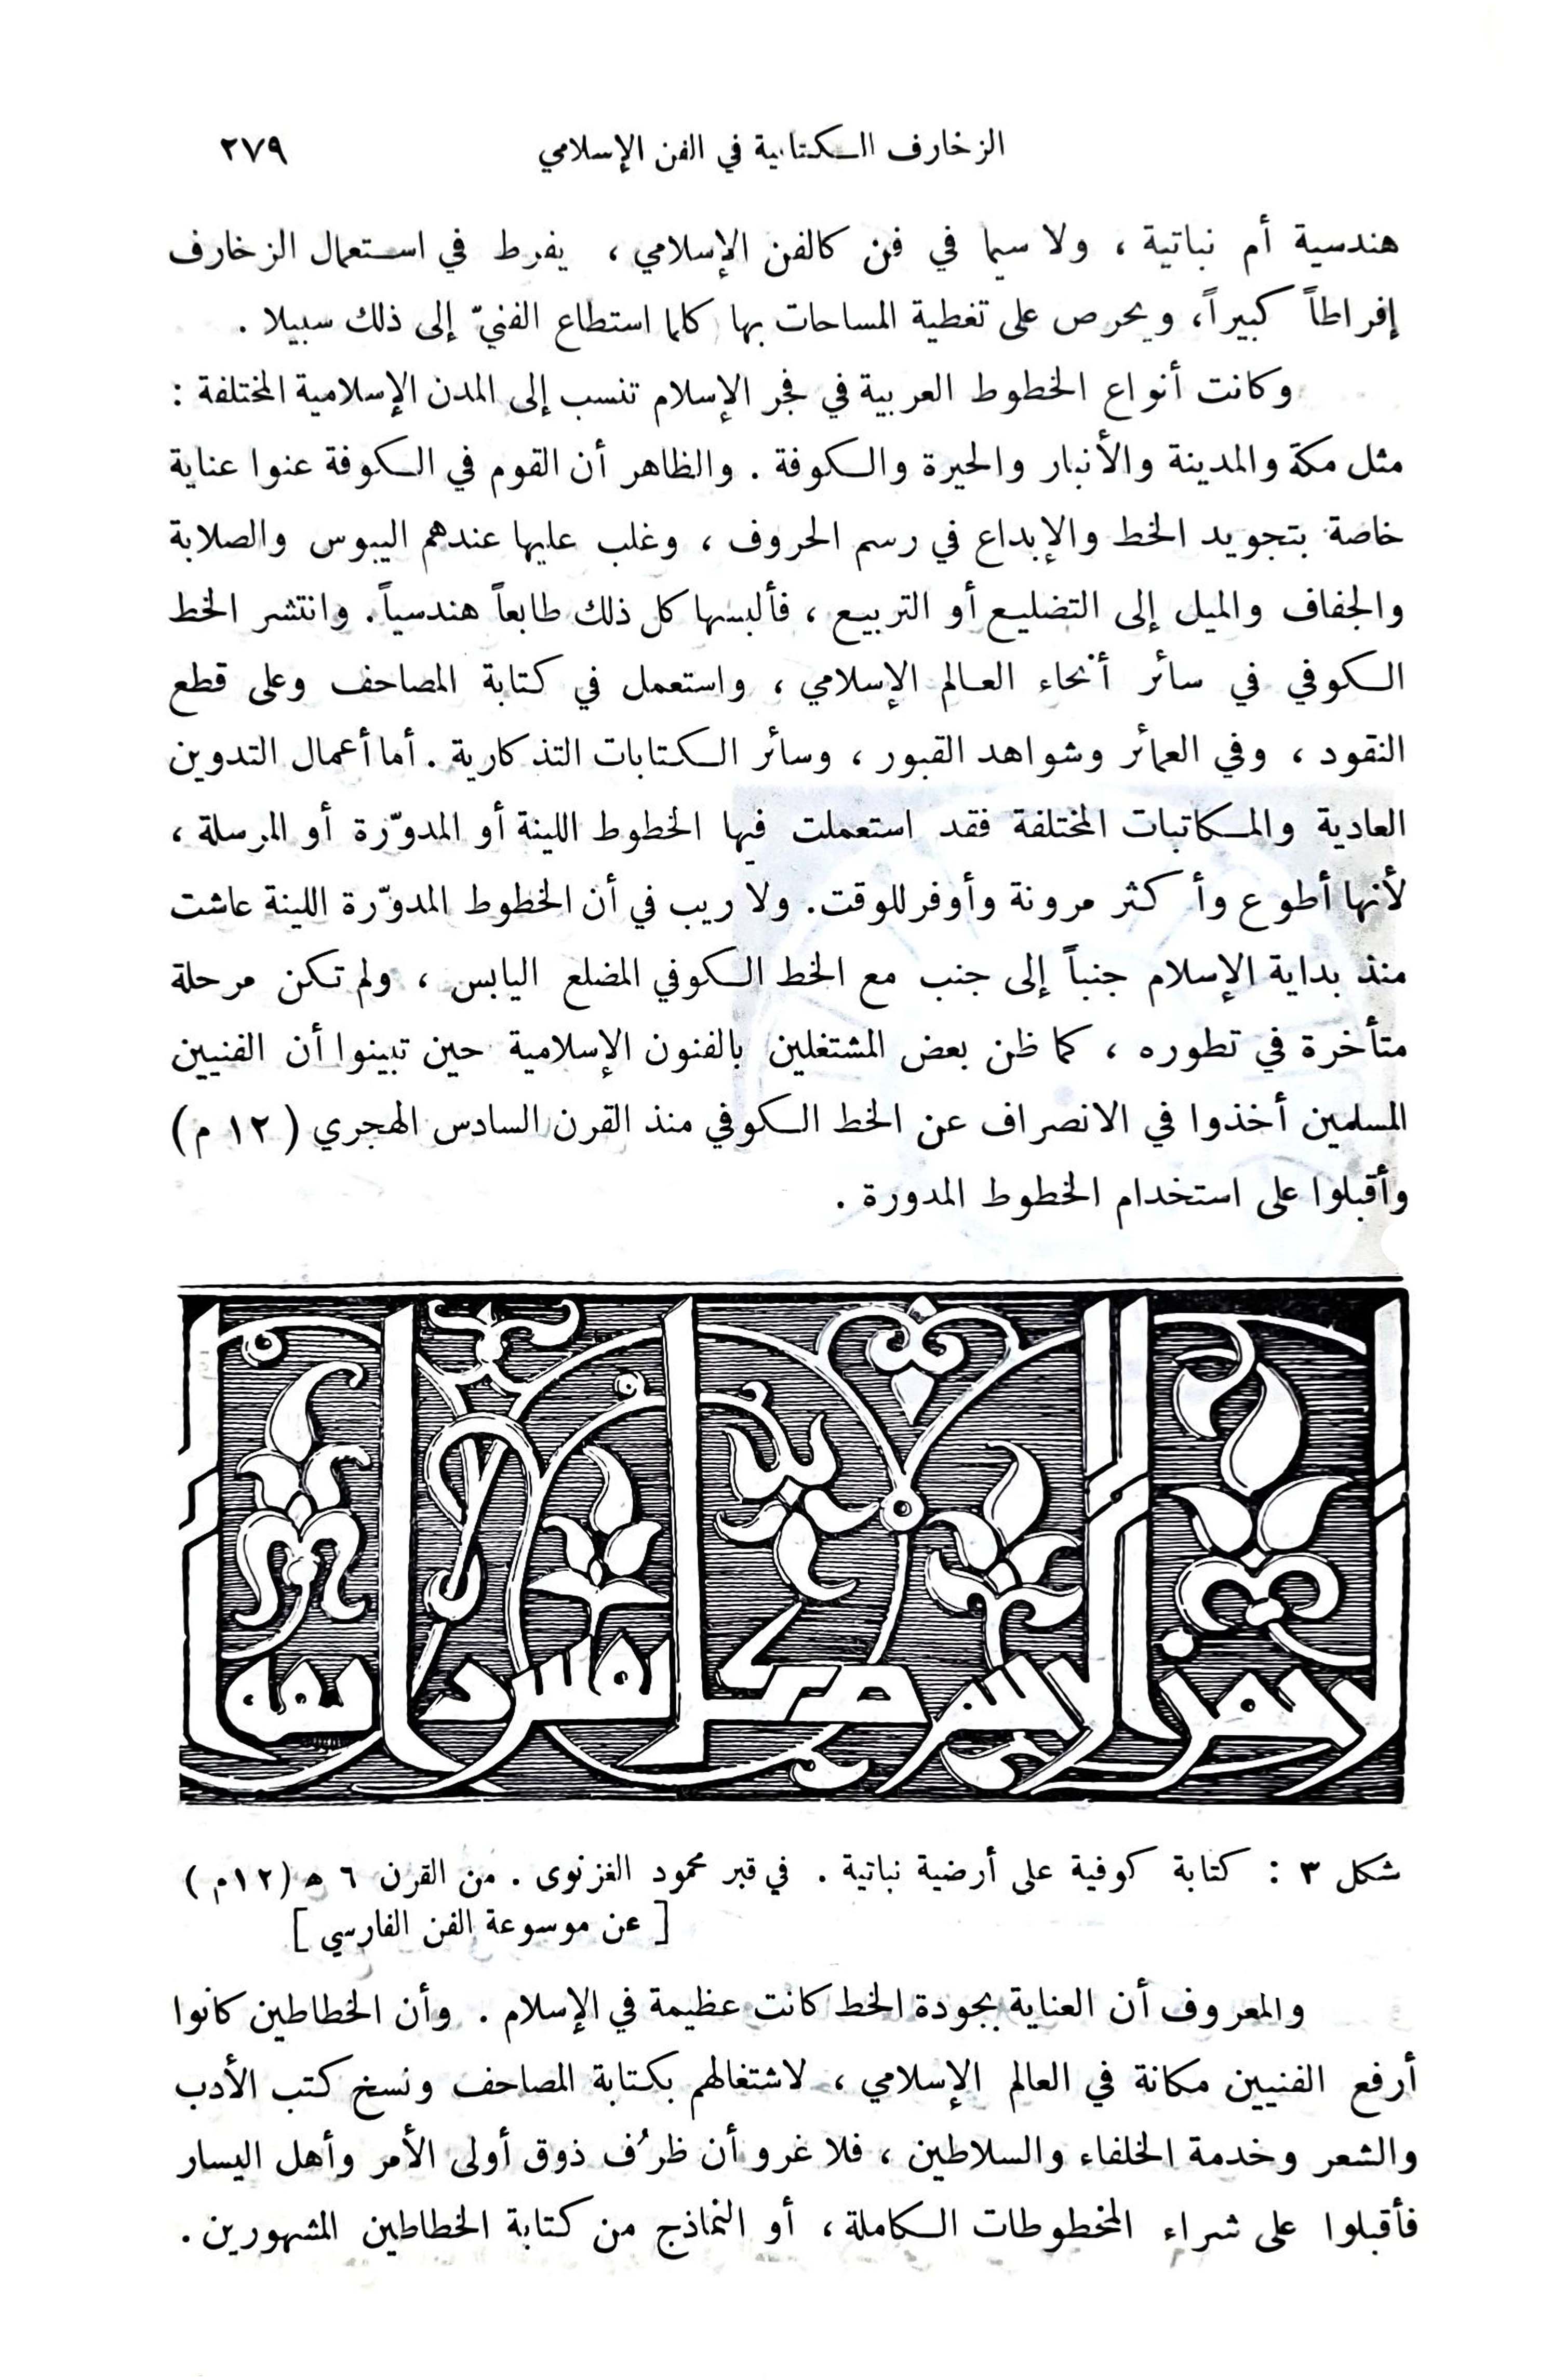 الزخارف الكتابية في الفن الإسلامي ٢٧٩
هندسية أم نباتية ، ولا سيما في فن كالفن الإسلامي ، يفرط في استعمال الزخارف
إفراطاً كبيراً، ويحرص على تغطية المساحات بها كلما استطاع الفنيّ إلى ذلك سبيلا .
وكانت أنواع الخطوط العربية في فجر الإسلام تنسب إلى المدن الإسلامية المختلفة :
مثل مكة والمدينة والأنبار والحيرة والكوفة . والظاهر أن القوم في الكوفة عنوا عناية
خاصة بتجويد الخط والإبداع في رسم الحروف ، وغلب عليها عندهم اليبوس والصلابة
والجفاف والميل إلى التضليع أو التربيع ، فألبسها كل ذلك طابعاً هندسياً. وانتشر الخط
الكوفي في سائر أنحاء العالم الإسلامي ، واستعمل في كتابة المصاحف وعلى قطع
النقود ، وفي العمائر وشواهد القبور ، وسائر الكتابات التذكارية . أما أعمال التدوين
العادية والمكاتبات المختلفة فقد استعملت فيها الخطوط اللينة أو المدوّرة أو المرسلة ،
لأنها أطوع وأكثر مرونة وأوفر للوقت. ولا ريب في أن الخطوط المدوّرة اللينة عاشت
منذ بداية الإسلام جنباً إلى جنب مع الخط الكوفي المضلع اليابس ، ولم تكن مرحلة
متأخرة في تطوره ، كما ظن بعض المشتغلين بالفنون الإسلامية حين تبينوا أن الفنيين
المسلمين أخذوا في الانصراف عن الخط الكوفي منذ القرن السادس الهجري ( ١٢ م )
وأقبلوا على استخدام الخطوط المدورة .
شكل ٣ : كتابة كوفية على أرضية نباتية . في قبر محمود الغزنوى . من القرن ٦ هـ (١٢م )
[ عن موسوعة الفن الفارسي ]
والمعروف أن العناية بجودة الخط كانت عظيمة في الإسلام . وأن الخطاطين كانوا
أرفع الفنيين مكانة في العالم الإسلامي ، لاشتغالهم بكتابة المصاحف ونسخ كتب الأدب
والشعر وخدمة الخلفاء والسلاطين ، فلا غرو أن ظرُف ذوق أولى الأمر وأهل اليسار
فأقبلوا على شراء المخطوطات الكاملة ، أو النماذج من كتابة الخطاطين المشهورين .